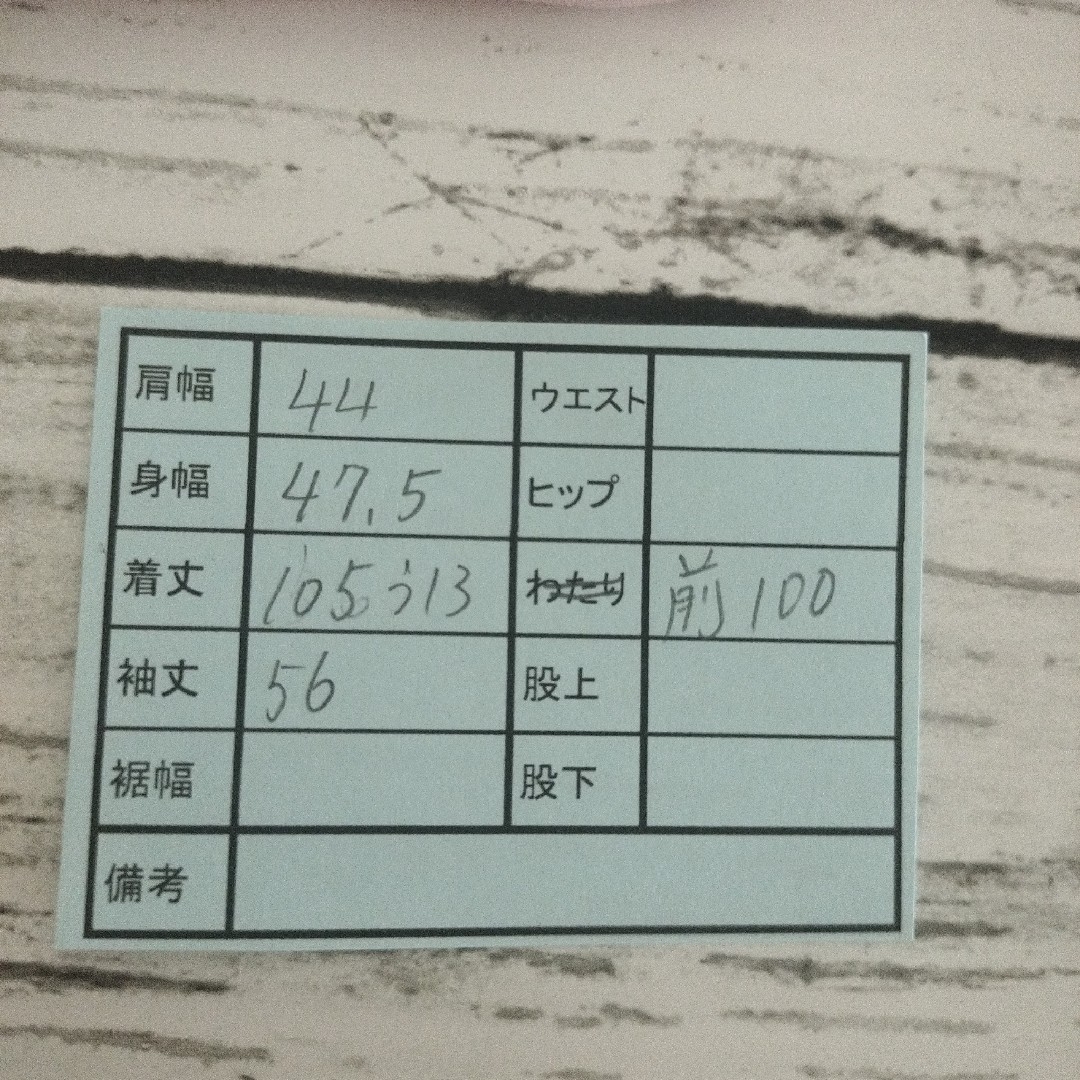 肩幅 44 ウエスト
身幅 47.5 ヒップ
着丈 105 わたり 前100
袖丈 56 股上
裾幅 股下
備考